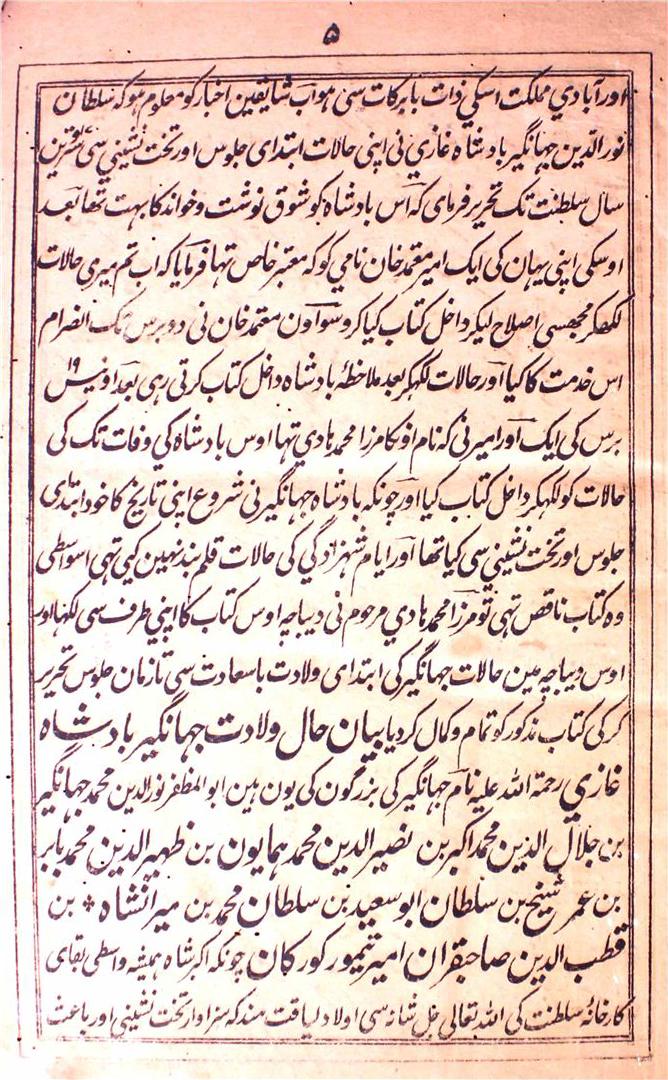 ۵
اور آبادي مملکت اسکي ذات بابرکات سی ہو اب شایقین اخبار کو معلوم ہو کہ سلطان
نور الدین جہانگیر بادشاہ غازي نی اپنی حالات ابتدای جلوس اور تخت نشیني سی
سال سلطنت تک تحریر فرمای کہ اس بادشاہ کو شوق نوشت و خواند کا بہت تھا بعد
اوسکی اپنی یہان کی ایک امیر معتمد خان نامي کو کہ معتبر خاص تہا فرمایا کہ اب تم میری حالات
لکھکر مجھسی اصلاح لیکر داخل کتاب کیا کرو سو اون معتمد خان نی دو برس تک انصرام
اس خدمت کا کیا اور حالات لکھکر بعد ملاخظہ بادشاہ داخل کتاب کرتی رہی بعد اونیس ۱۹
برس کی ایک اور امیر نی کہ نام اونکا مرزا محمد ہادي تہا اوس بادشاہ کي وفات تک کی
حالات کو لکھکر داخل کتاب کیا اور چونکہ بادشاہ جہانگیر نی شروع اپنی تاریخ کا خود ابتدای
جلوس اور تخت نشیني سی کیا تھا اور ایام شہزادگي کی حالات قلم بند نہین کیی تہی اسواسطی
وہ کتاب ناقص تہی تو مرزا محمد ہادي مرحوم نی دیباچہ اوس کتاب کا اپنی طرف سی لکھا اور
اوس دیباچہ مین حالات جہانگیر کی ابتدای ولادت باسعادت سی تا زمان جلوس تحریر
کر کی کتاب مذکور کو تمام و کمال کر دیا بیان حال ولادت جہانگیر بادشاہ
غازي رحمة اللہ علیہ نام جہانگیر کی بزرگون کی یون ہین ابو المظفر نور الدین محمد جہانگیر
بن جلال الدین محمد اکبر بن نصیر الدین محمد ہمایون بن ظہیر الدین محمد بابر
بن عمر شیخ بن سلطان ابو سعید بن سلطان محمد بن میرانشاہ * بن
قطب الدین صاحبقران امیر تیمور کورکان چونکہ اکبر شاہ ہمیشہ واسطی بقای
کارخانۂ سلطنت کی اللہ تعالی جل شانہ سی اولاد لیاقت مند کہ سزاوار تخت نشیني اور باعث